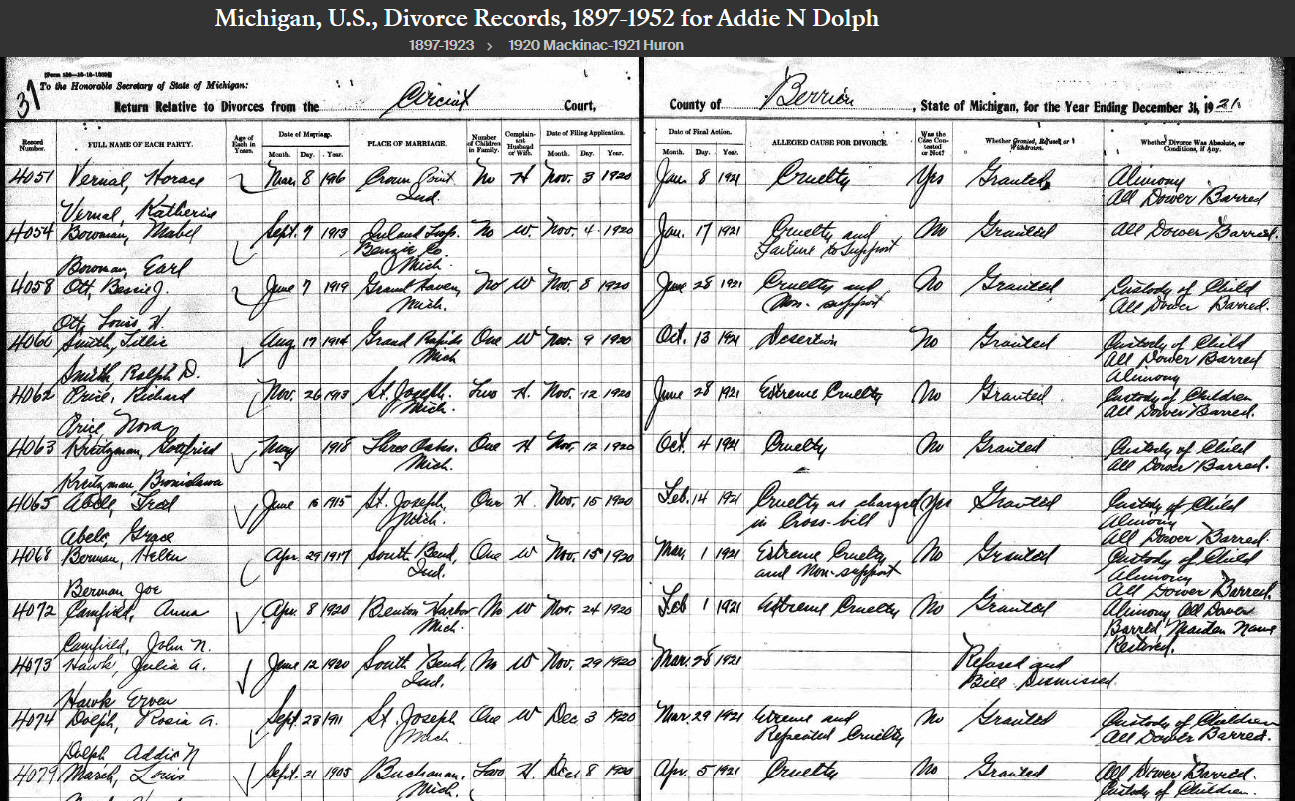 Michigan, U.S., Divorce Records, 1897-1952 for Addie N Dolph
1897-1923 › 1920 Mackinac-1921 Huron
31
To the Honorable Secretary of State of Michigan:
Return Relative to Divorces from the Circuit Court, County of Berrien, State of Michigan, for the Year Ending December 31, 1921.
Record Number. FULL NAME OF EACH PARTY. Age of Each in Years. Date of Marriage. Month. Day. Year. PLACE OF MARRIAGE. Number of Children in Family. Complainant Husband or Wife. Date of Filing Application. Month. Day. Year. Date of Final Action. Month. Day. Year. ALLEGED CAUSE FOR DIVORCE. Was the Case Contested or Not? Whether Granted, Refused or Withdrawn. Whether Divorce Was Absolute, or Conditions, if Any.
4051 Vernal, Horace Mar. 8 1916 Crown Point Ind. No H Nov. 3 1920 Jan. 8 1921 Cruelty Yes Granted Alimony
All Dower Barred
Vernal, Katherine
4054 Bowman, Mabel Sept. 9 1913 Inland Twp. Benzie Co. Mich. No W Nov. 4 1920 Jan. 17 1921 Cruelty and Failure to Support No Granted All Dower Barred.
Bowman, Earl
4058 Ott, Bessie J. June 7 1919 Grand Haven, Mich. No W Nov. 8 1920 June 28 1921 Cruelty and Non-support No Granted Custody of Child
All Dower Barred.
Ott, Louis H.
4060 Smith, Tillie Aug. 17 1914 Grand Rapids Mich One W Nov. 9 1920 Oct. 13 1921 Desertion No Granted Custody of Child
All Dower Barred
Alimony
Smith, Ralph D.
4062 Price, Richard Nov. 26 1913 St. Joseph. Mich. Two H. Nov. 12 1920 June 28 1921 Extreme Cruelty No Granted Custody of Children
All Dower Barred.
Price Nora
4063 Kreitzman, Gottfried May 1918 Three Oaks. Mich. One H Nov. 12 1920 Oct. 4 1921 Cruelty No Granted Custody of Child
All Dower Barred.
Kreitzman Bronislawa
4065 Abele, Fred June 16 1915 St. Joseph, Mich. One H. Nov. 15 1920 Feb. 14 1921 Cruelty as charged in Cross-bill Yes Granted Custody of Child
Alimony
All Dower Barred.
Abele, Grace
4068 Berman, Helen Apr. 29 1917 South Bend, Ind. One W Nov. 15 1920 Mar. 1 1921 Extreme Cruelty and Non-support No Granted Custody of Child
Alimony
All Dower Barred.
Berman Joe
4072 Camfield, Anna Apr. 8 1920 Benton Harbor Mich. No W Nov. 24 1920 Feb 1 1921 Extreme Cruelty No Granted Alimony All Dower
Barred Maiden Name
Restored.
Camfield, John N.
4073 Hawk, Julia A. June 12 1920 South Bend, Ind. No W Nov. 29 1920 Mar. 28 1921 Refused and Bill Dismissed.
Hawks Erven
4074 Dolph, Rosia A. Sept. 28 1911 St. Joseph Mich One W Dec 3 1920 Mar. 29 1921 Extreme and Repeated Cruelty No Granted Custody of Children
All Dower Barred.
Dolph Addie N
4079 March, Louis Sept. 21 1905 Buchanan, Mich. Two H. Dec 8 1920 Apr. 5 1921 Cruelty No Granted All Dower Barred.
Custody of Children.